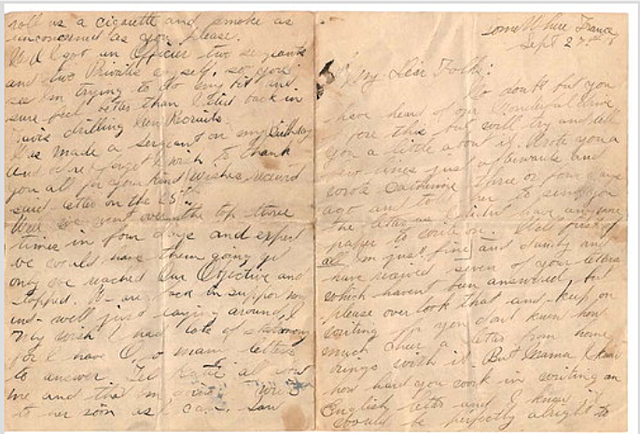 roll us a cigarette and smoke as
unconcerned as you please.
Well I got an Officer two sergeants
and two Privates myself, so you
see Im trying to do my bit and
sure feel better than I did back in
drilling new Recruits.
Was made a Sergeant on my Birthday
and wish to thank
you all for your kind wishes, received
said letter on the 25th
Well we went over the top three
times in four days and expect
we could have them going yet
only we reached Our Objective and
stopped. back in support now
and well just laying around,
my wish I had a lot of stationary
for I have so many letters
to answer. Tell Katie all about
me and that Im write
to her soon as I can. Saw
Somewhere France
Sept 27th 18
My Dear Folks:
No doubt but you
have heard of our Wonderful drive
fore this but will try and tell
you a little about it. Wrote you a
few lines just afterwards and
wrote Catherine three or four days
ago and told her to send you
the letter as I didn't have anymore
paper to write on. Well first of
all Im just fine and dandy and
have received seven of your letters
which havent been answered, but
please over look that and keep on
writing for you dont know how
much cheer a letter from home
brings with it. But Mama I know
how hard you work in writing an
English letter and I know it
would be perfectly alright to